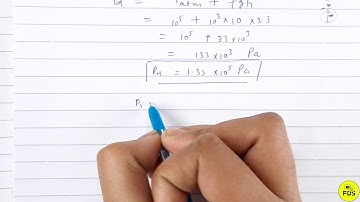 Pd = Patm + ρgh
= 10⁵ + 10³ × 10 × 3.3
= 10⁵ + 33 × 10³
= 133 × 10³ Pa
Pd = 1.33 × 10⁵ Pa
P
FDS